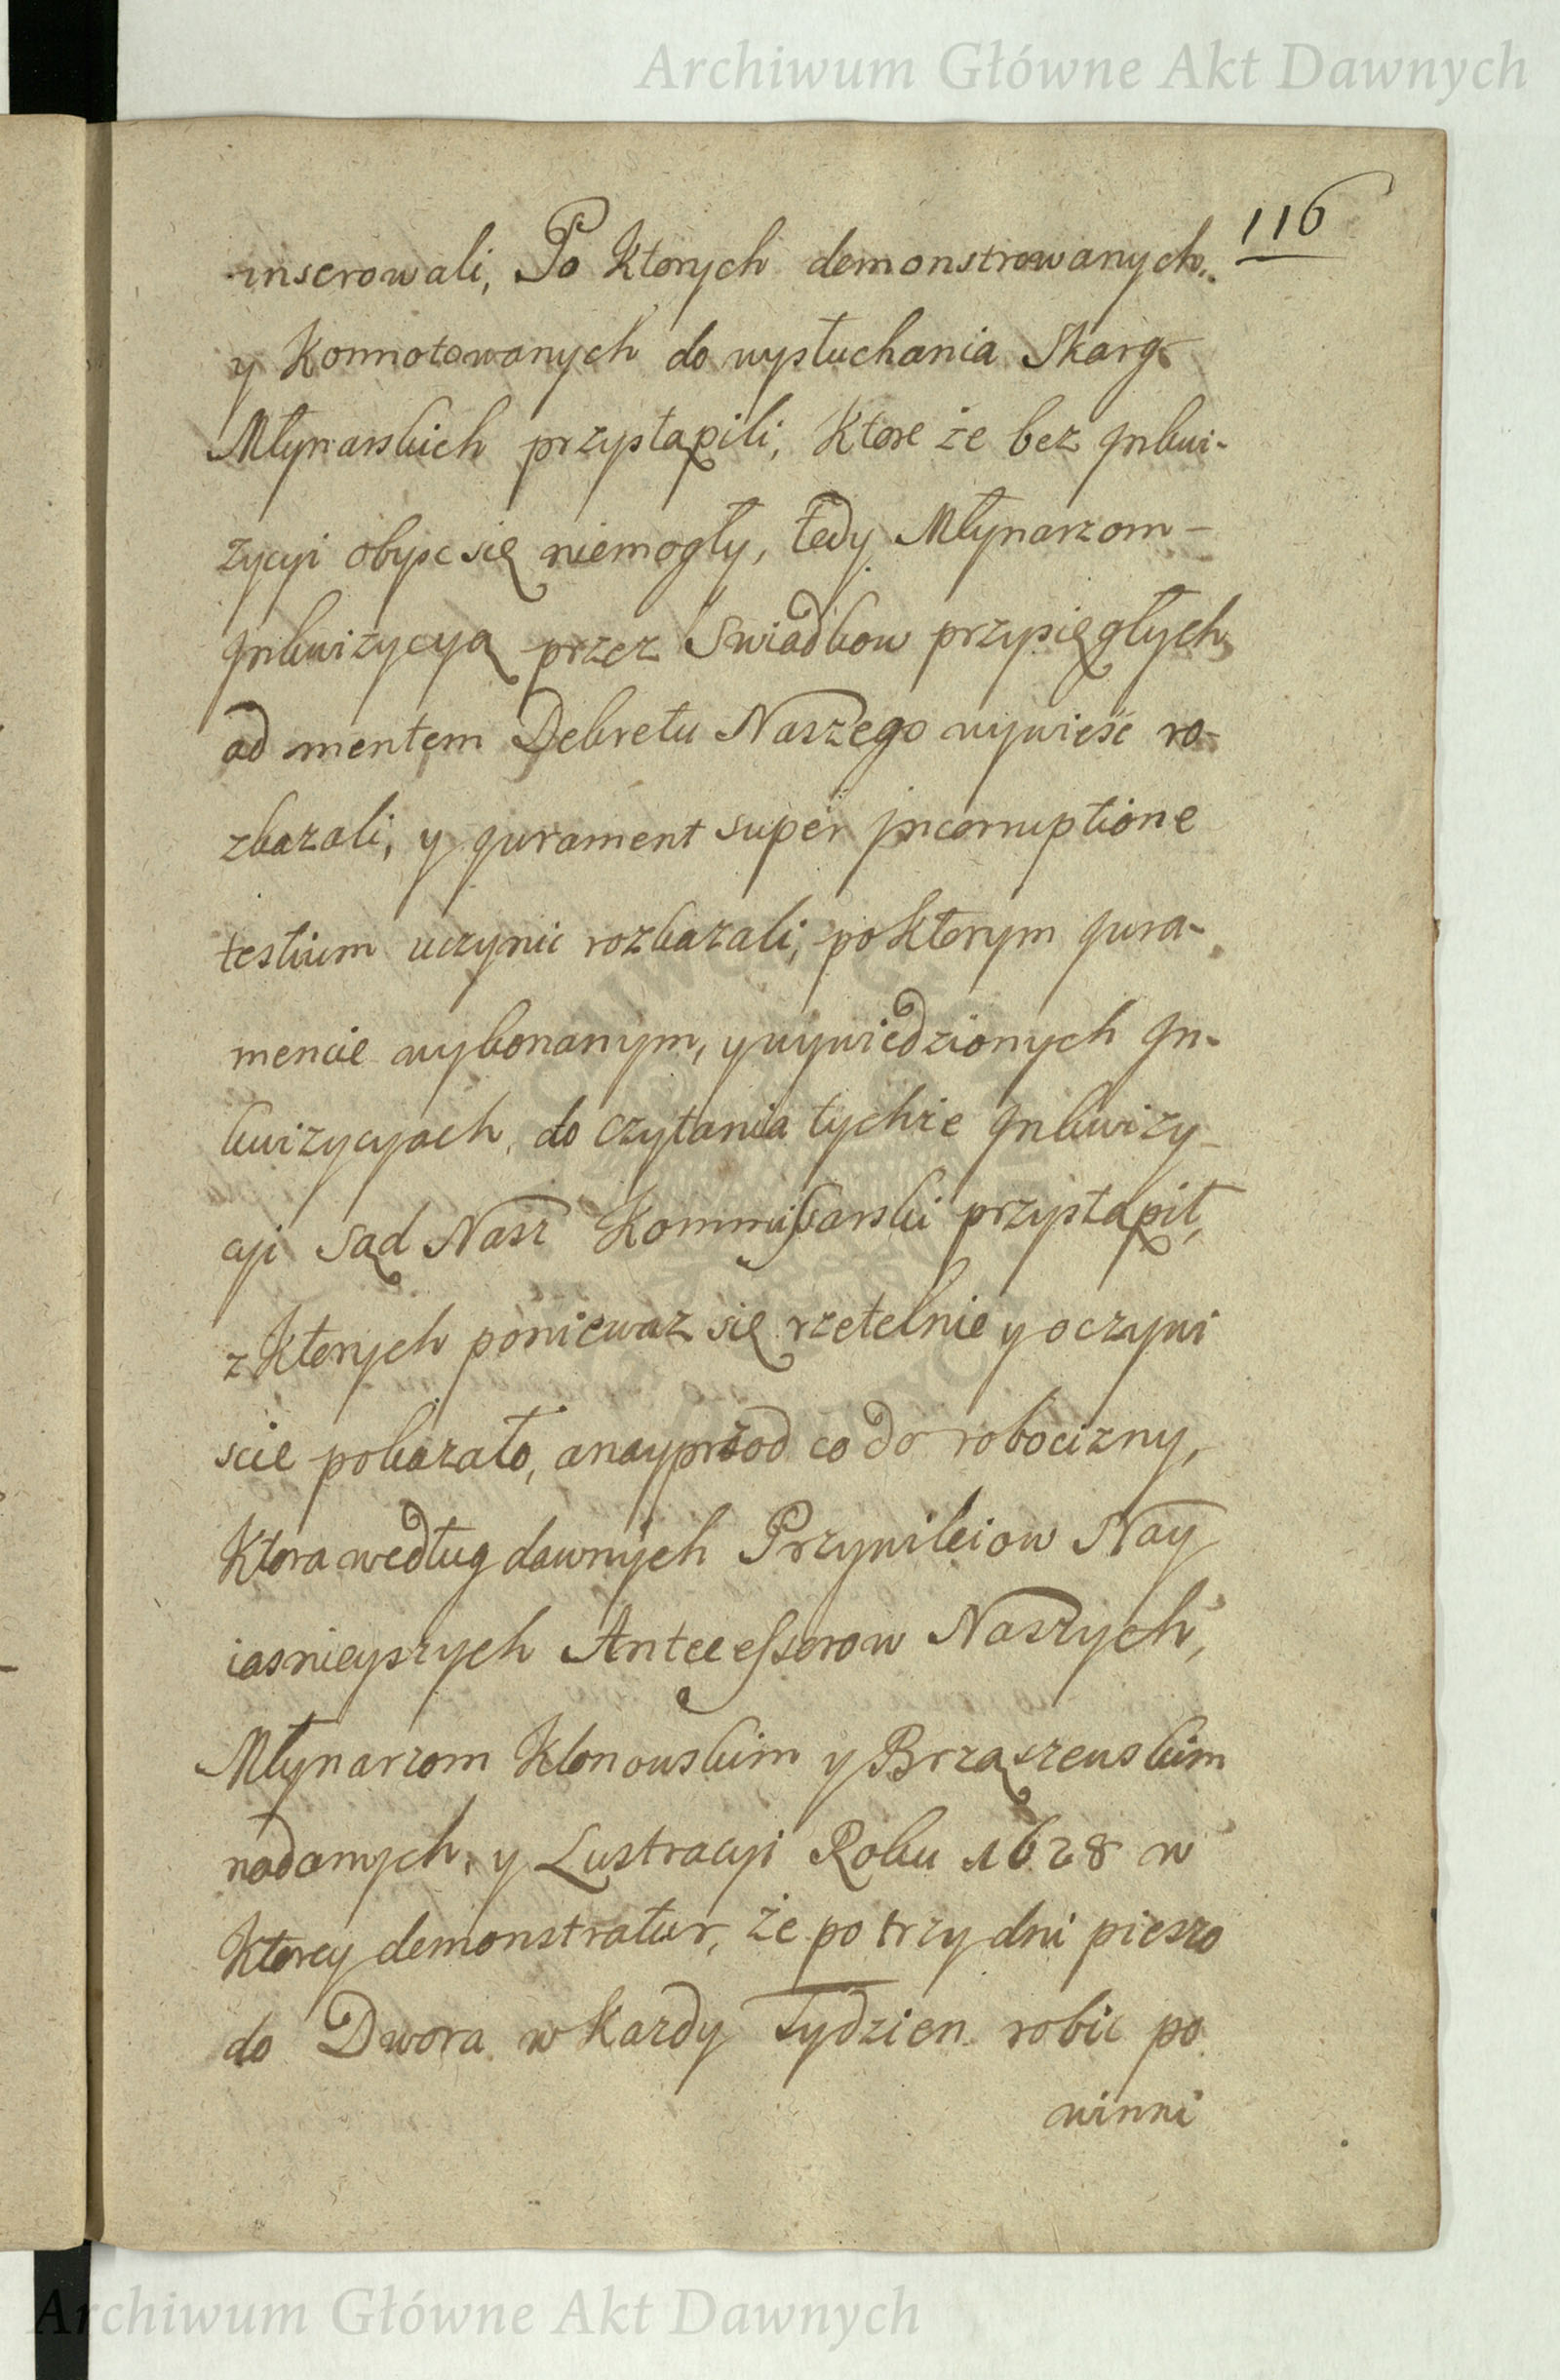 Archiwum Główne Akt Dawnych
116
inserowali, Po Ktorych demonstrowanych
y Konnotowanych do wysłuchania Skarg
Młynarskich przystąpili, Ktore że bez Jnkwi-
zycyi obysc się niemogły, tedy Młynarzom
Jnkwizycyą przez Swiadkow przysięgłych
ad mentem Dekretu Naszego wywiesc ro-
zkazali, y Jurament super jncorruptione
testium uczynic rozkazali, po Ktorym Jura-
mencie wykonanym, y wywiedzionych Jn-
kwizycyach, do czytania tychże Jnkwizy-
cyi Sąd Nasz Kommissarski przystąpił,
z Ktorych poniewaz się rzetelnie y oczywi
scie pokazało, a nayprzod co do robocizny,
Ktora według dawnych Przywileiow Nay
iasnieyszych Antecessorow Naszych,
Młynarzom Klonowskim y Brząszewskim
nadanych, y Lustracyi Roku 1628 w
Ktorey demonstratur, że po trzy dni pieszo
do Dwora w Kazdy Tydzien robic po
winni
Archiwum Główne Akt Dawnych